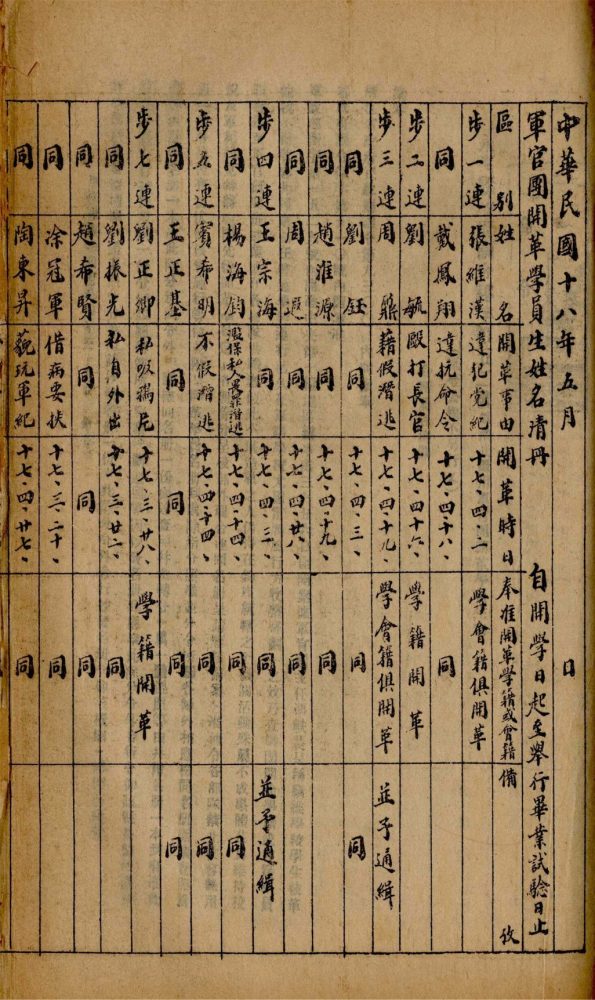 中華民國十八年五月　　日
軍官團開革學員生姓名清冊　自開學日起至舉行畢業試驗日止
區別　姓名　開革事由　開革時日　奉准開革學籍或會籍　備攷
步一連　張維漢　違犯党紀　十七、四、二　學會籍俱開革
同　戴鳳翔　違抗命令　十七、四、十八、　同
步二連　劉毓　毆打長官　十七、四、十六、　學籍開革
步三連　周鼎　藉假潛逃　十七、四、十九、　學會籍俱開革　並予通緝
同　劉鈺　同　十七、四、三、　同　同
同　趙淮源　同　十七、四、十九、　同
同　周　同　十七、四、廿八、　同
步四連　王宗海　同　十七、四、三、　同　並予通緝
同　楊海鈞　濫保私人為罪潛逃　十七、四、十四、　同　同
步五連　賓希明　不假潛逃　十七、四、十四、　同　同
同　王正基　同　同　同　同
步七連　劉正卿　私吸鴉片　十七、三、廿八、　學籍開革
同　劉振光　私自外出　十七、三、廿二、　同
同　趙希賢　同　同　同
同　涂冠軍　借病要挾　十七、三、二十、　同
同　陶東昇　藐玩軍紀　十七、四、廿七、　同